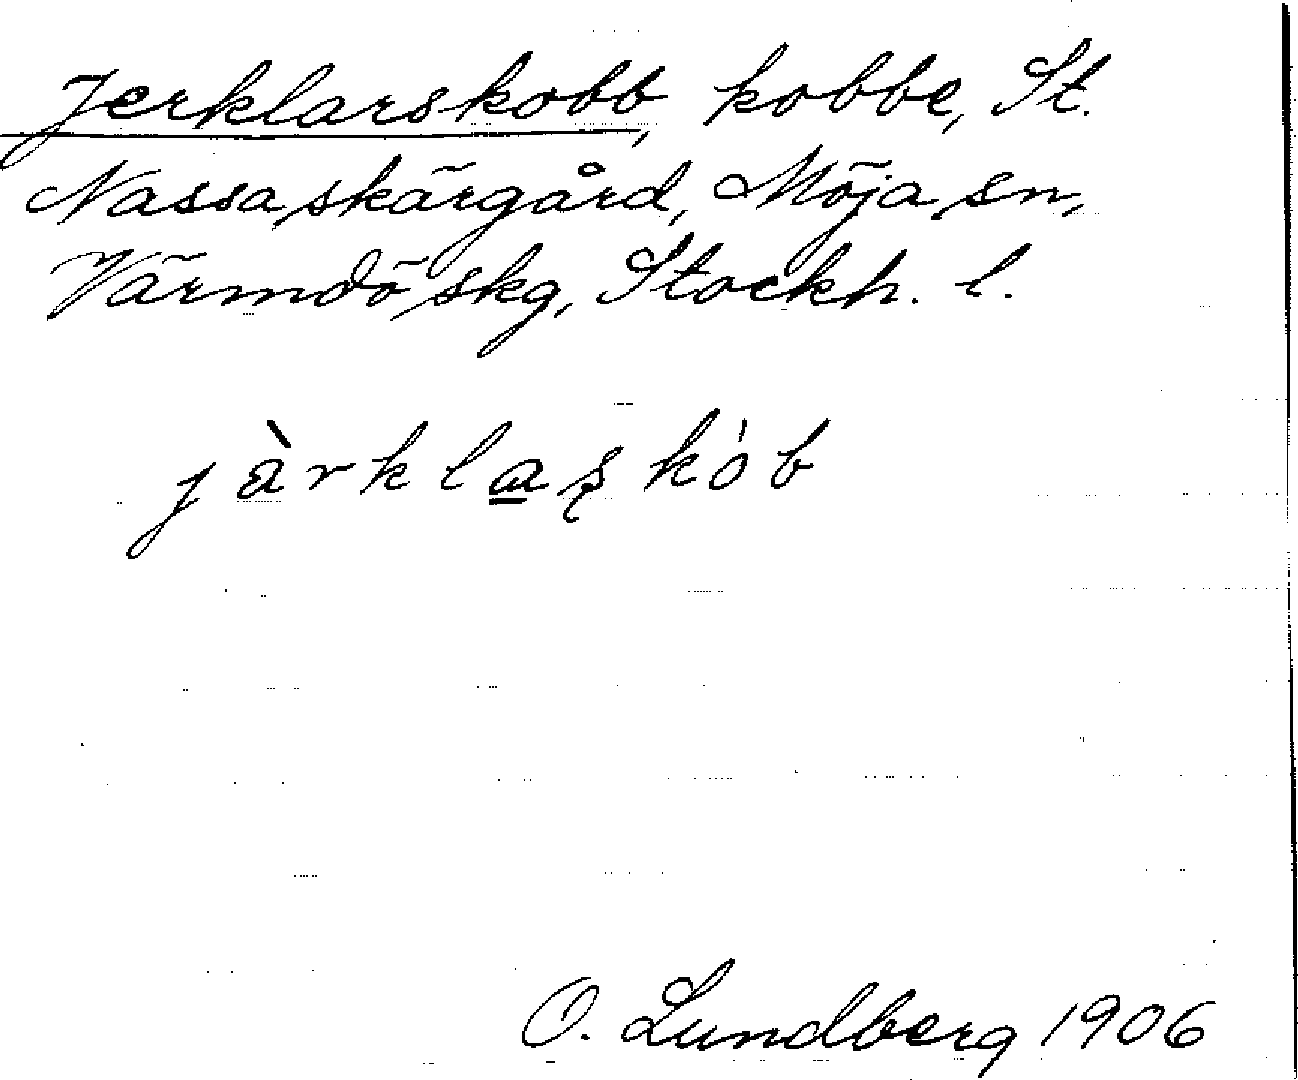 Jerklarskobb, kobbe, St.
Nassa skärgård, Möja sn,
Värmdö skg, Stockh. l.
j à r k l a ʂ k ó b
O. Lundberg 1906